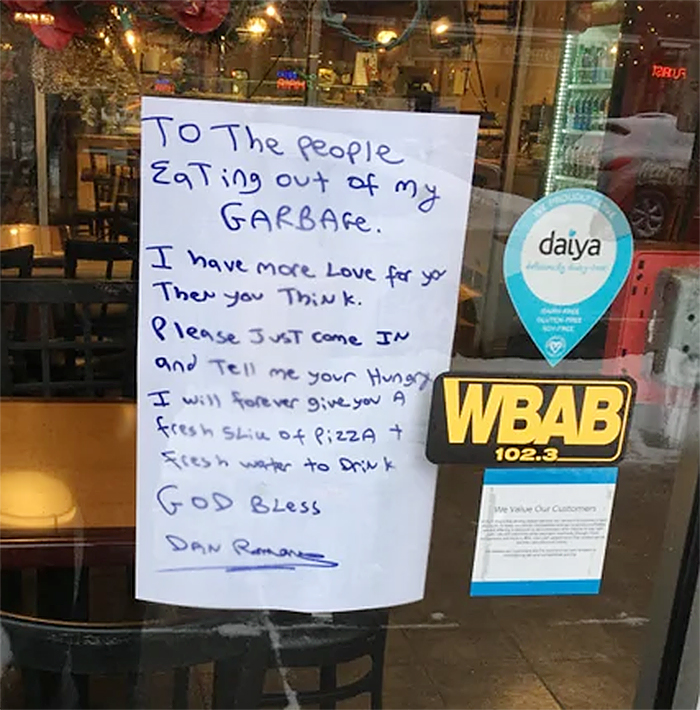 TO The people
EaTing out of my
GARBAGE.
I have more Love for yo
Then you Think.
Please JUST come IN
and Tell me your Hungry
I will forever give you A
fresh Slice of PizzA +
fresh water to Drink
GOD BLess
DAN
WE PROUDLY SERVE
daiya
deliciously dairy-free
DAIRY-FREE
GLUTEN-FREE
SOY-FREE
WBAB
102.3
We Value Our Customers